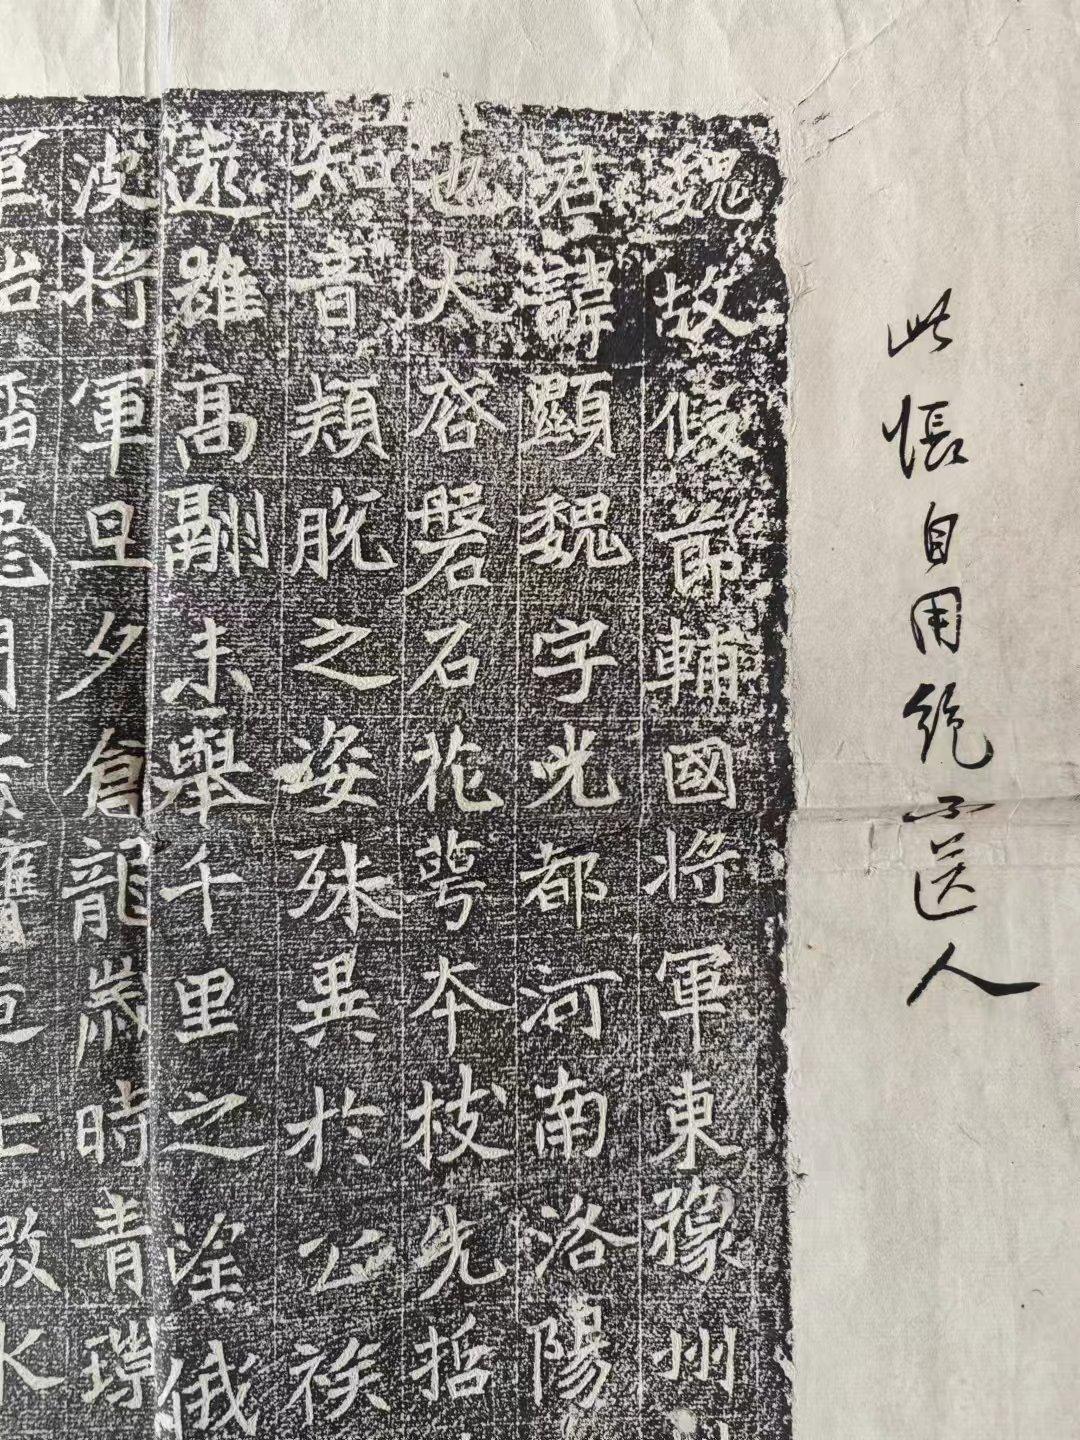 此張自用絕不送人
魏故假節輔國將軍東豫州
君諱顯魏字光都河南洛陽
也大啓磐石花萼本枝先哲
知昔穎脫之姿殊異於公族
遠雖高翮未舉千里之塗俄
波將軍旦夕倉龍歲時青璅
軍